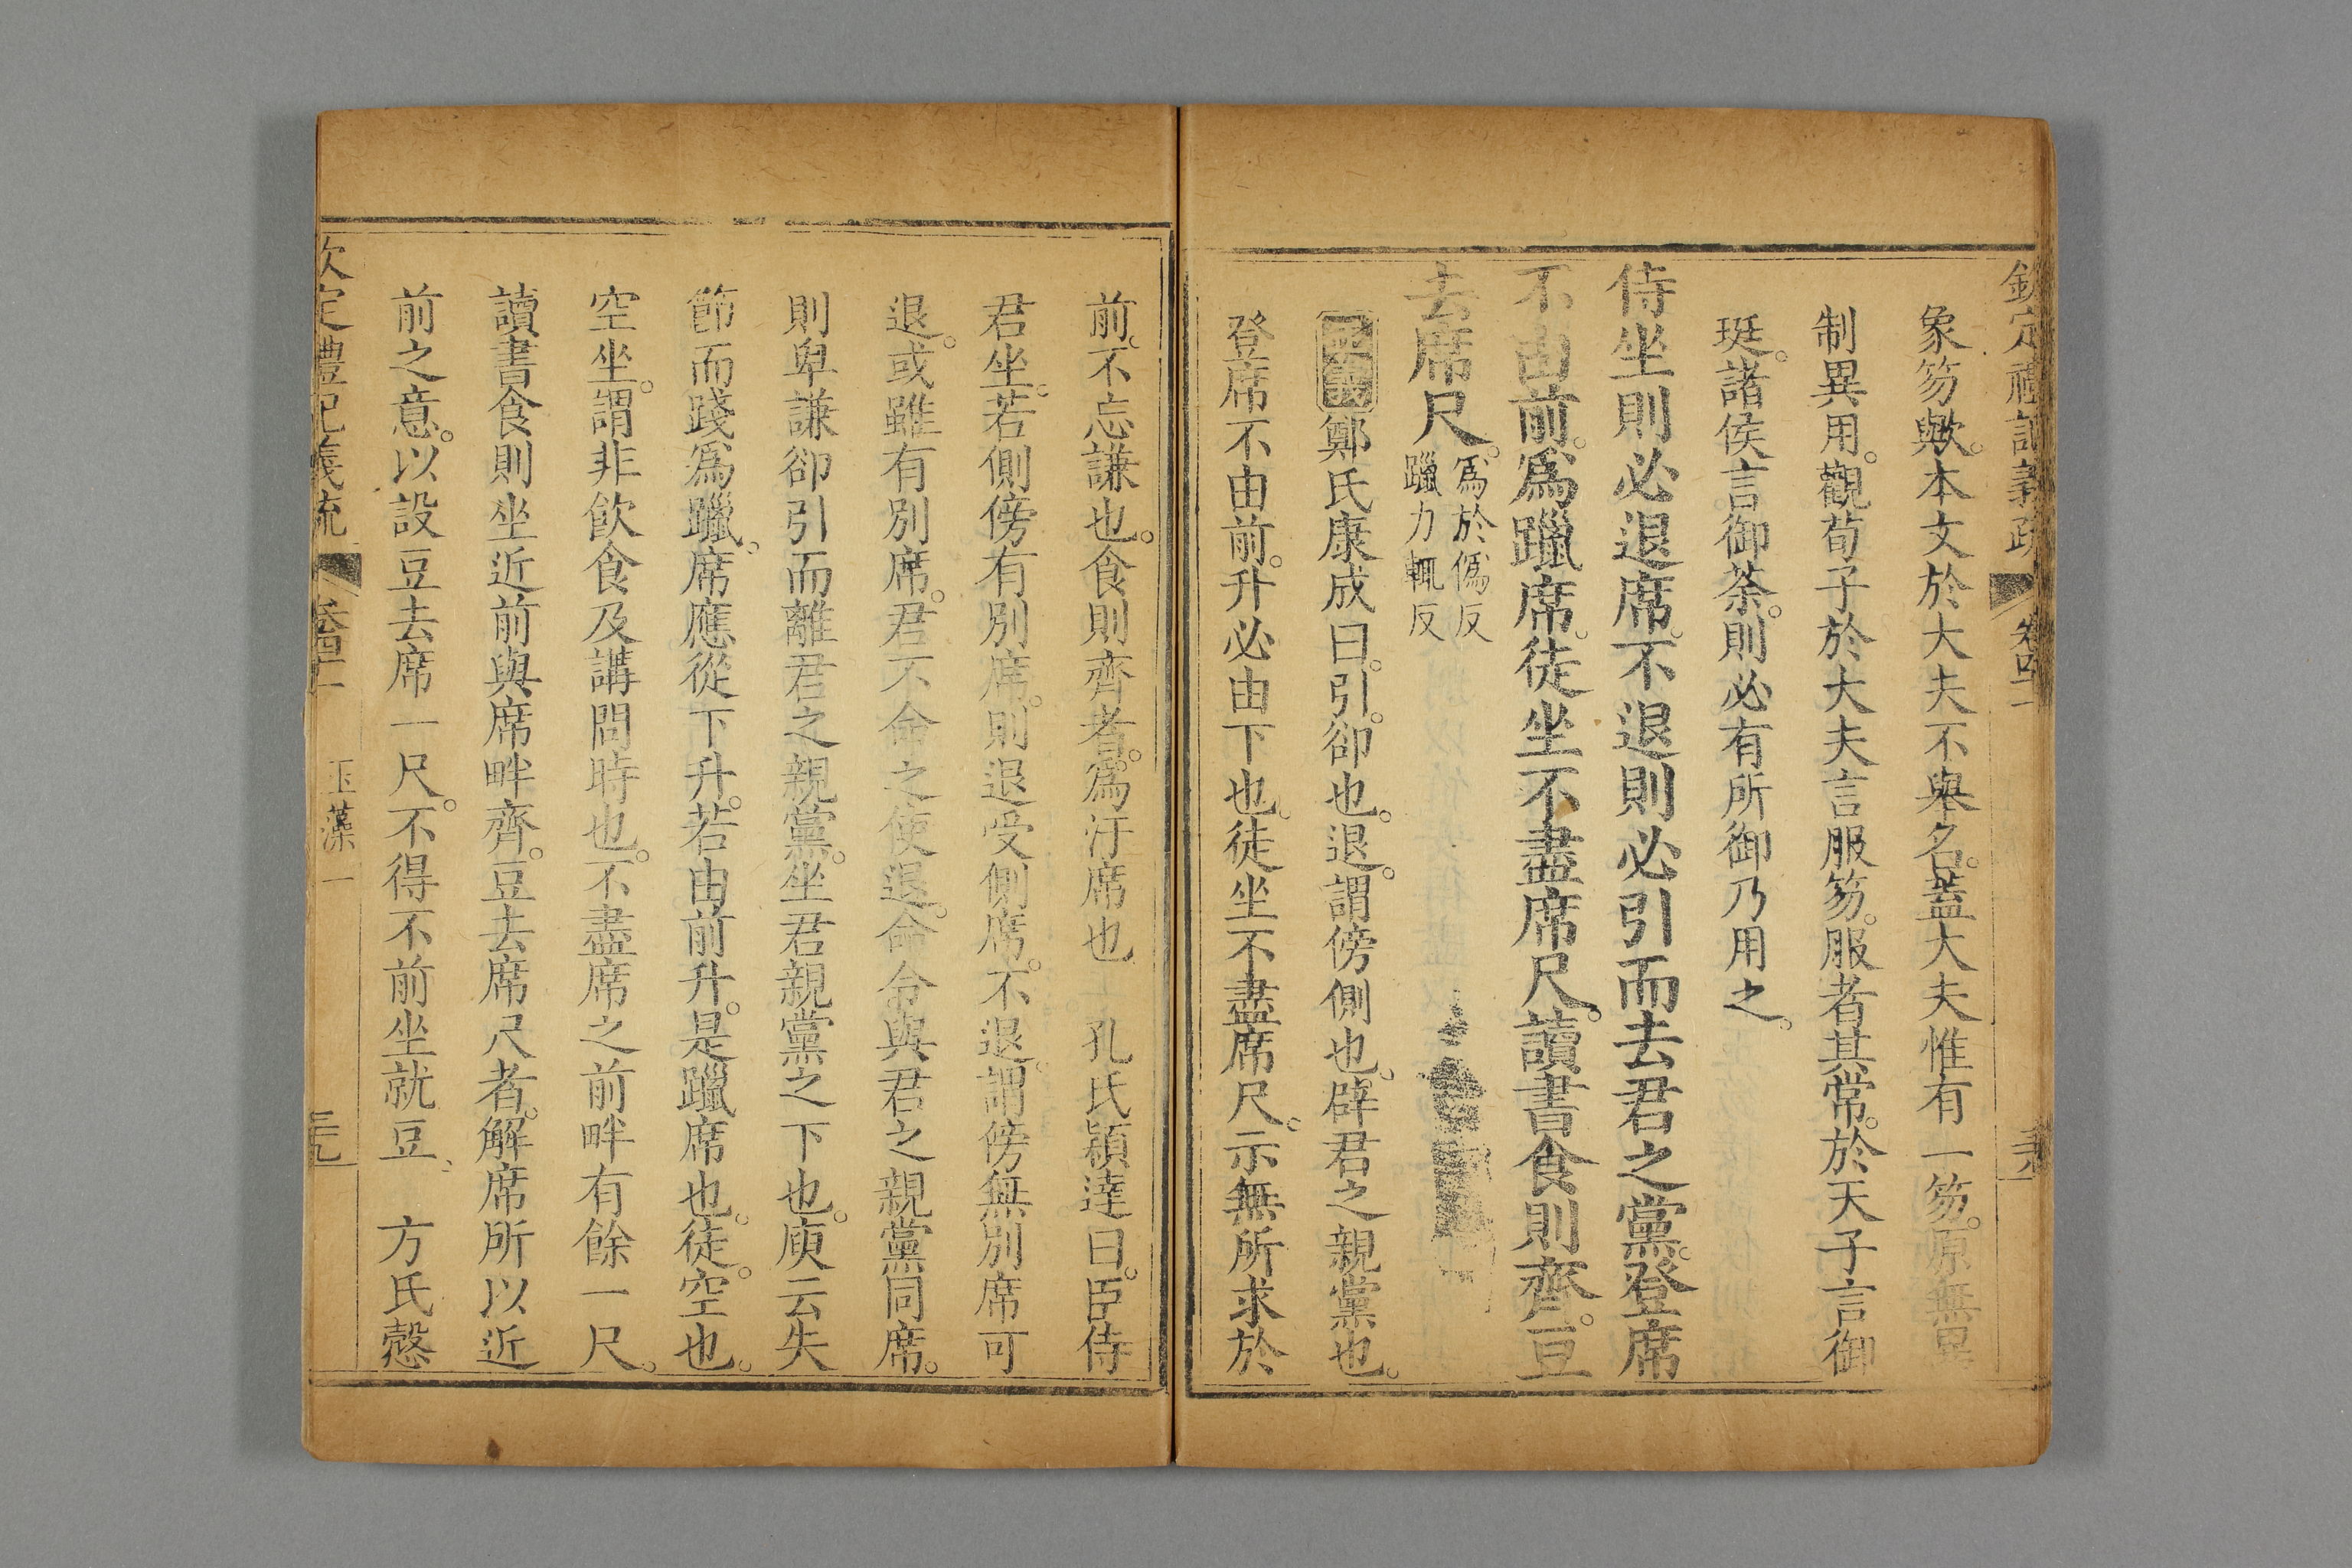 欽定禮記義疏 卷四十一
象笏歟。本文於大夫不舉名。蓋大夫惟有一笏。原無異
制異用。觀荀子於大夫言服笏。服者其常。於天子言御
珽。諸侯言御荼。則必有所御乃用之。
侍坐則必退席。不退則必引而去君之黨。登席
不由前。爲躐席。徒坐不盡席尺。讀書食則齊。豆
去席尺。爲於僞反
躐力輒反
鄭氏康成曰。引。卻也。退。謂傍側也。辟君之親黨也。
登席不由前。升必由下也。徒坐不盡席尺。示無所求於
前。不忘謙也。食則齊者。爲汙席也 孔氏穎達曰。臣侍
君坐。若側傍有別席。則退受側席。不退。謂傍無別席可
退。或雖有別席。君不命之使退。命令與君之親黨同席。
則卑謙卻引而離君之親黨。坐君親黨之下也。庾云失
節而踐爲躐。席應從下升。若由前升。是躐席也。徒。空也。
空坐。謂非飲食及講問時也。不盡席之前畔有餘一尺。
讀書食則坐近前與席畔齊。豆去席尺者。解席所以近
前之意。以設豆去席一尺。不得不前坐就豆 方氏慤
欽定禮記義疏 卷四十一 玉藻一 三九